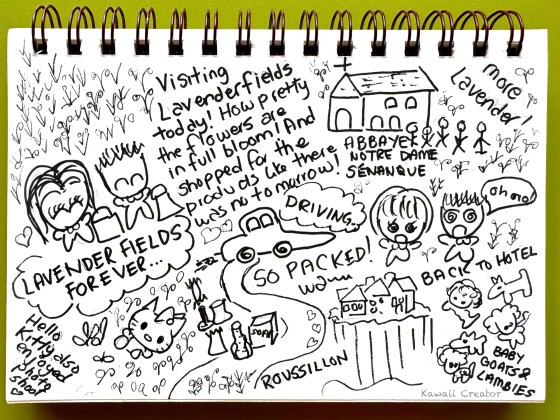 Visiting
Lavenderfields
today! How pretty
the flowers are
in full bloom! And
shopped for the
products like there
was no tomorrow!
more
Lavender!
ABBAYE
NOTRE DAME
SÉNANQUE
LAVENDER FIELDS
FOREVER...
DRIVING...
SO PACKED!
oh no!
BACK TO HOTEL
Hello
Kitty also
enjoyed
photo
shoot
SOAP
ROUSSILLON
BABY
GOATS &
LAMBIES
Kawaii Creator